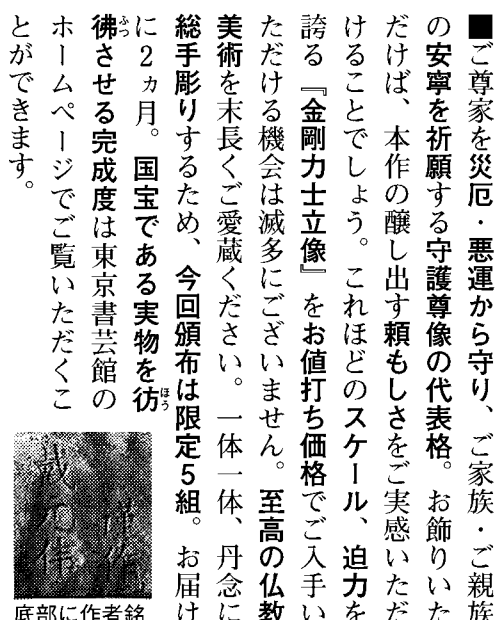 ■ご尊家を災厄・悪運から守り、ご家族・ご親族
の安寧を祈願する守護尊像の代表格。お飾りいた
だけば、本作の醸し出す頼もしさをご実感いただ
けることでしょう。これほどのスケール、迫力を
誇る『金剛力士立像』をお値打ち価格でご入手い
ただける機会は滅多にございません。至高の仏教
美術を末長くご愛蔵ください。一体一体、丹念に
総手彫りするため、今回頒布は限定5組。お届け
に2ヵ月。国宝である実物を彷ほう
彿ふつさせる完成度は東京書芸館の
ホームページでご覧いただくこ
とができます。
戴元偉
底部に作者銘